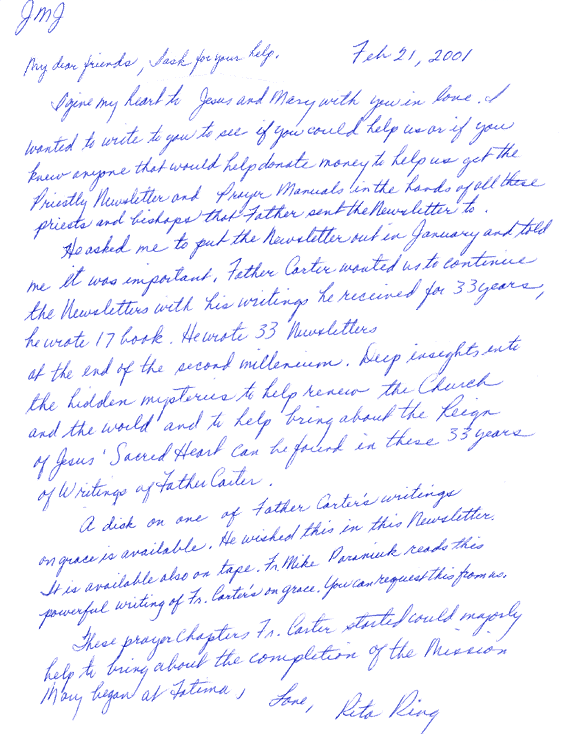 JMJ
My dear friends, I ask for your help. Feb 21, 2001
I give my heart to Jesus and Mary with you in love. I
wanted to write to you to see if you could help us or if you
knew anyone that would help donate money to help us get the
Priestly Newsletter and Prayer Manuals in the hands of all these
priests and bishops that Father sent the Newsletter to.
He asked me to put the Newsletter out in January and told
me It was important. Father Carter wanted us to continue
the Newsletters with his writings he received for 33 years,
he wrote 17 book. He wrote 33 Newsletters
at the end of the second millenium. Deep insights into
the hidden mysteries to help renew the Church
and the world and to help bring about the Reign
of Jesus' Sacred Heart can be found in these 33 years
of Writings of Father Carter.
A disk on one of Father Carter's writings
on grace is available. He wished this in this Newsletter.
It is available also on tape. Fr. Mike Paraniuk reads this
powerful writing of Fr. Carter's on grace. You can request this from us.
These prayer Chapters Fr. Carter started could majorly
help to bring about the completion of the Mission
Mary began at Fatima, Love, Rita Ring